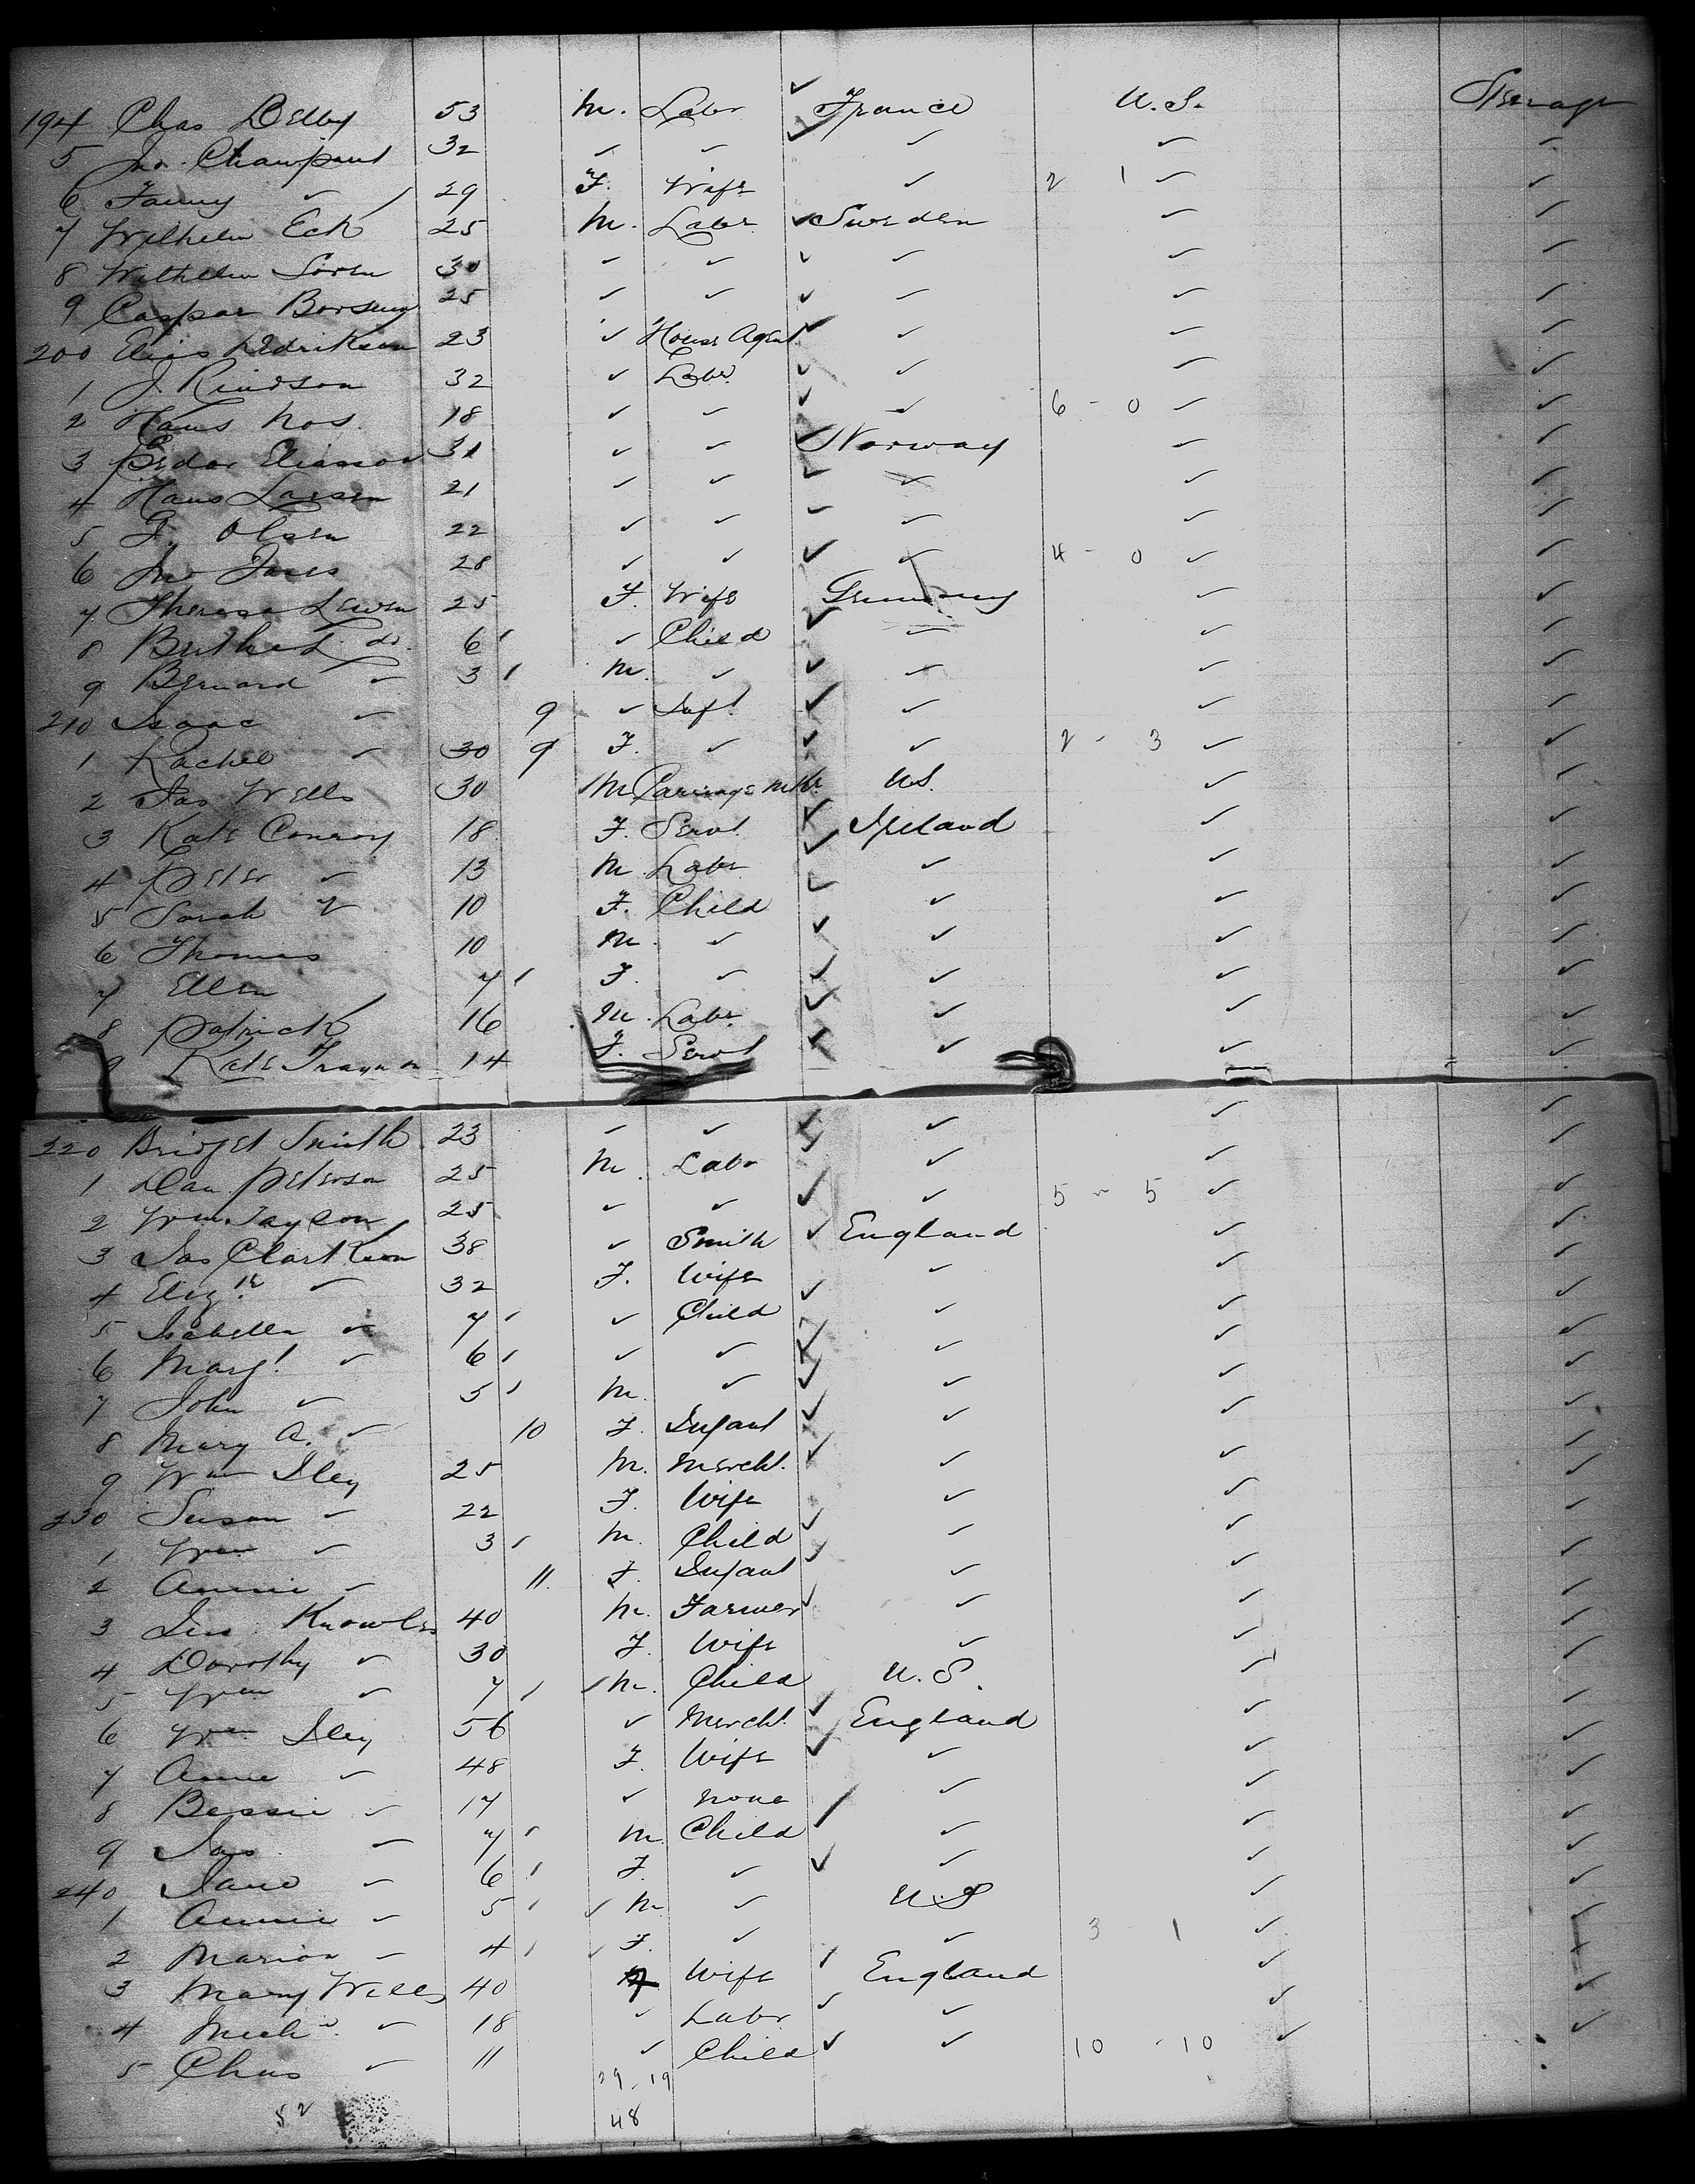 194 Chas Delby 53 M. Labr ✓ France U.S. Steerage
5 Jno. Champaut 32 ✓ ✓ ✓ ✓ ✓ ✓
6 Fanny ✓ 29 F. Wife ✓ 2 1 ✓ ✓
7 Wilhelm Eck 25 M. Labr ✓ Sweden ✓ ✓
8 Wilhelm Soren 30 ✓ ✓ ✓ ✓ ✓ ✓
9 Caspar 25 ✓ ✓ ✓ ✓ ✓ ✓
200 Elias Dedrikson 23 ✓ House Agent ✓ ✓ ✓ ✓
1 J. 32 ✓ Labr ✓ ✓ ✓ ✓
2 Hans Nos. 18 ✓ ✓ ✓ ✓ 6 - 0 ✓ ✓
3 Peder Eliasson 31 ✓ ✓ ✓ Norway ✓ ✓
4 Hans Larsen 21 ✓ ✓ ✓ ✓ ✓ ✓
5 Olsen 22 ✓ ✓ ✓ ✓ ✓ ✓
6 Jno 28 ✓ ✓ ✓ ✓ 4 - 0 ✓ ✓
7 Theresa Lewen 25 F. Wife Germany ✓ ✓
8 do. 6 ✓ Child ✓ ✓ ✓ ✓
9 Bernard ✓ 3 M. ✓ ✓ ✓ ✓ ✓
210 Isaac ✓ 9 ✓ Inft ✓ ✓ ✓ ✓
1 Rachel ✓ 30 9 F. ✓ ✓ ✓ 2 - 3 ✓ ✓
2 Jas Wells 30 M Carriage Mkr. U.S. ✓ ✓
3 Kate Conroy 18 F. Servt. ✓ Ireland ✓ ✓
4 Peter ✓ 13 M Labr ✓ ✓ ✓ ✓
5 Sarah ✓ 10 F. Child ✓ ✓ ✓ ✓
6 Thomas 10 M. ✓ ✓ ✓ ✓ ✓
7 Ellen 7 F. ✓ ✓ ✓ ✓ ✓
8 Patrick 16 M. Labr. ✓ ✓ ✓ ✓
9 Kate Traynor 14 F. Servt ✓ ✓ ✓ ✓
220 Bridget Smith 23 ✓ ✓ ✓ ✓ ✓ ✓
1 Dan Peterson 25 M. Labr ✓ ✓ ✓ ✓
2 Wm. Taylor 25 ✓ ✓ ✓ ✓ 5 - 5 ✓ ✓
3 Jas Clarkson 38 ✓ Smith ✓ England ✓ ✓
4 Elizth ✓ 32 F. Wife ✓ ✓ ✓
5 Isabella ✓ 7 ✓ Child ✓ ✓ ✓ ✓
6 Margt ✓ 6 ✓ ✓ ✓ ✓ ✓ ✓
7 John ✓ 5 M. ✓ ✓ ✓ ✓ ✓
8 Mary A. ✓ 10 F. Infant ✓ ✓ ✓ ✓
9 Wm Iley 25 M. Mercht. ✓ ✓ ✓ ✓
230 Susan ✓ 22 F. Wife ✓ ✓ ✓
1 Wm ✓ 3 M. Child ✓ ✓ ✓ ✓
2 Annie ✓ 11. F. Infant ✓ ✓ ✓ ✓
3 Knowles 40 M. Farmer ✓ ✓ ✓ ✓
4 Dorothy ✓ 30 F. Wife ✓ ✓ ✓
5 Wm ✓ 7 ✓ M. Child U.S. ✓ ✓
6 Wm Iley 56 ✓ Mercht. ✓ England ✓ ✓
7 Annie ✓ 48 F. Wife ✓ ✓ ✓ ✓
8 Bessie ✓ 17 ✓ None ✓ ✓ ✓
9 Jas ✓ 7 M. Child ✓ ✓ ✓ ✓
240 Jane ✓ 6 F. ✓ ✓ ✓ ✓ ✓
1 Annie ✓ 5 ✓ M ✓ U.S ✓ ✓
2 Marion ✓ 4 ✓ F. ✓ ✓ 3 - 1 ✓
3 Mary Wells 40 F Wife ✓ England ✓ ✓
4 Michl. ✓ 18 ✓ Labr ✓ ✓ ✓ ✓
5 Chas ✓ 11 ✓ Child ✓ ✓ 10 - 10 ✓ ✓
29 - 19
52 48